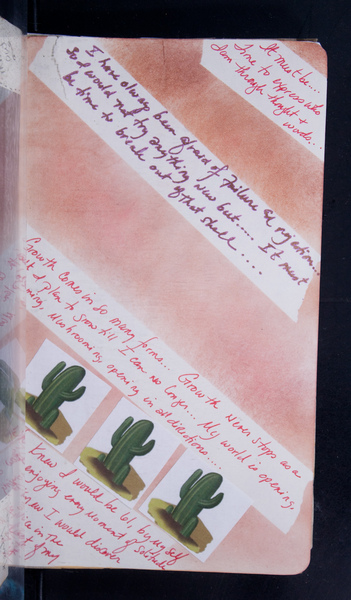 It must be...
Time to express who
I am through thought +
words...
I have always been afraid of failure & rejection...
So I would not try anything new but.... It must
be time to break out
of that shell....
Growth comes in so many forms... Growth never stops as a
I plan to grow till I can no longer... My world is opening,
Mushrooming, opening in all directions....
Knew I would be lol, by myself
enjoying every moment of solitude
I would discover
in the
of my